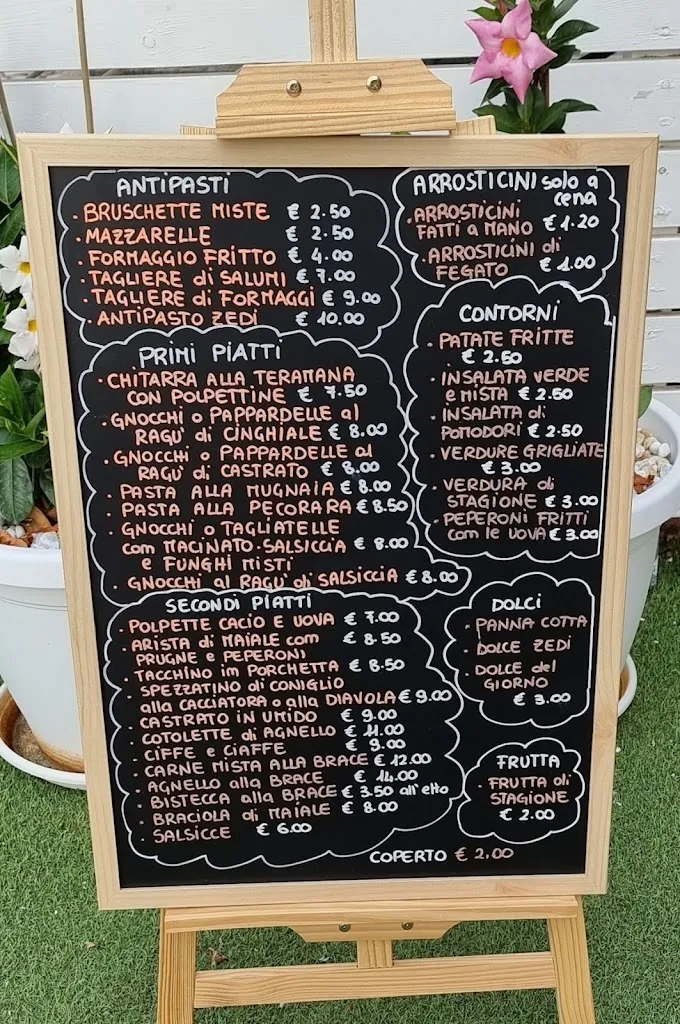 ANTIPASTI
· BRUSCHETTE MISTE € 2.50
· MAZZARELLE € 2.50
· FORMAGGIO FRITTO € 4.00
· TAGLIERE di SALUMI € 7.00
· TAGLIERE di FORMAGGI € 9.00
· ANTIPASTO ZEDI € 10.00
PRIMI PIATTI
· CHITARRA ALLA TERAMANA
CON POLPETTINE € 7.50
· GNOCCHI o PAPPARDELLE al
RAGU' di CINGHIALE € 8.00
· GNOCCHI o PAPPARDELLE al
RAGU' di CASTRATO € 8.00
· PASTA ALLA MUGNAIA € 8.00
· PASTA ALLA PECORARA € 8.50
· GNOCCHI o TAGLIATELLE
com MACINATO·SALSICCIA € 8.00
e FUNGHI MISTI
· GNOCCHI al RAGU' di SALSICCIA € 8.00
SECONDI PIATTI
· POLPETTE CACIO E UOVA € 7.00
· ARISTA di MAIALE com € 8.50
PRUGNE e PEPERONI
· TACCHINO im PORCHETTA € 8.50
· SPEZZATINO di CONIGLIO
alla CACCIATORA o alla DIAVOLA € 9.00
· CASTRATO IN UMIDO € 9.00
· COTOLETTE di AGNELLO € 11.00
· CIFFE e CIAFFE € 9.00
· CARNE MISTA ALLA BRACE € 12.00
· AGNELLO alla BRACE € 14.00
· BISTECCA alla BRACE € 3.50 all'etto
· BRACIOLA di MAIALE € 8.00
· SALSICCE € 6.00
ARROSTICINI solo a
cena
· ARROSTICINI
FATTI a MANO € 1.20
· ARROSTICINI di
FEGATO € 1.00
CONTORNI
· PATATE FRITTE
€ 2.50
· INSALATA VERDE
e MISTA € 2.50
· INSALATA di
POMODORI € 2.50
· VERDURE GRIGLIATE
€ 3.00
· VERDURA di
STAGIONE € 3.00
· PEPERONI FRITTI
com le UOVA € 3.00
DOLCI
· PANNA COTTA
· DOLCE ZEDI
· DOLCE del
GIORNO
€ 3.00
FRUTTA
· FRUTTA di
STAGIONE
€ 2.00
COPERTO € 2.00